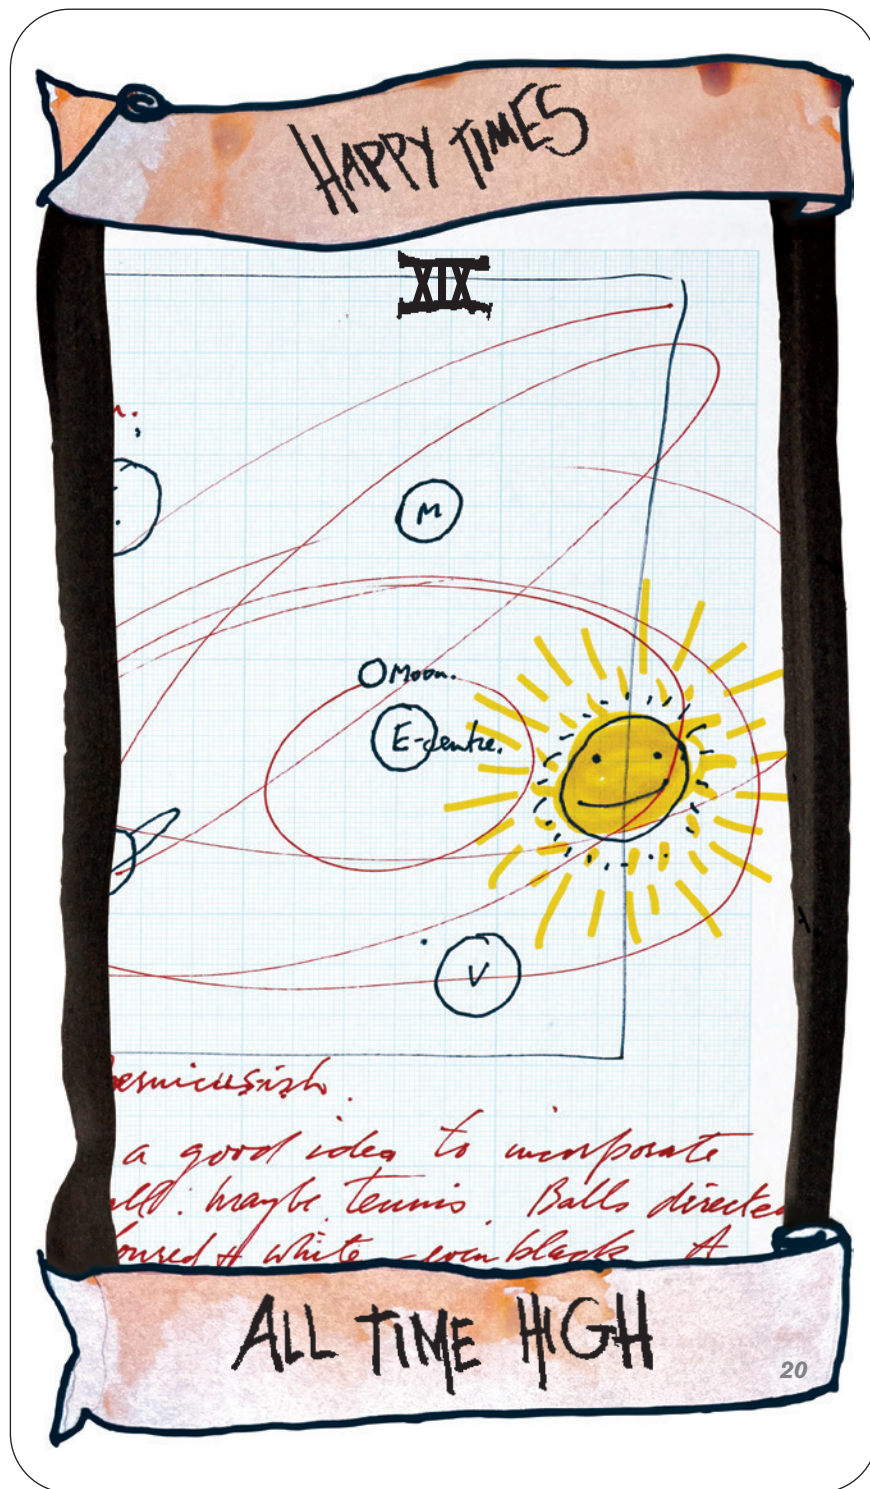 HAPPY TIMES
XIX
M
Moon.
E-centre.
V
a good idea to incorporate
maybe tennis. Balls directed
white - even black A
ALL TIME HIGH
20